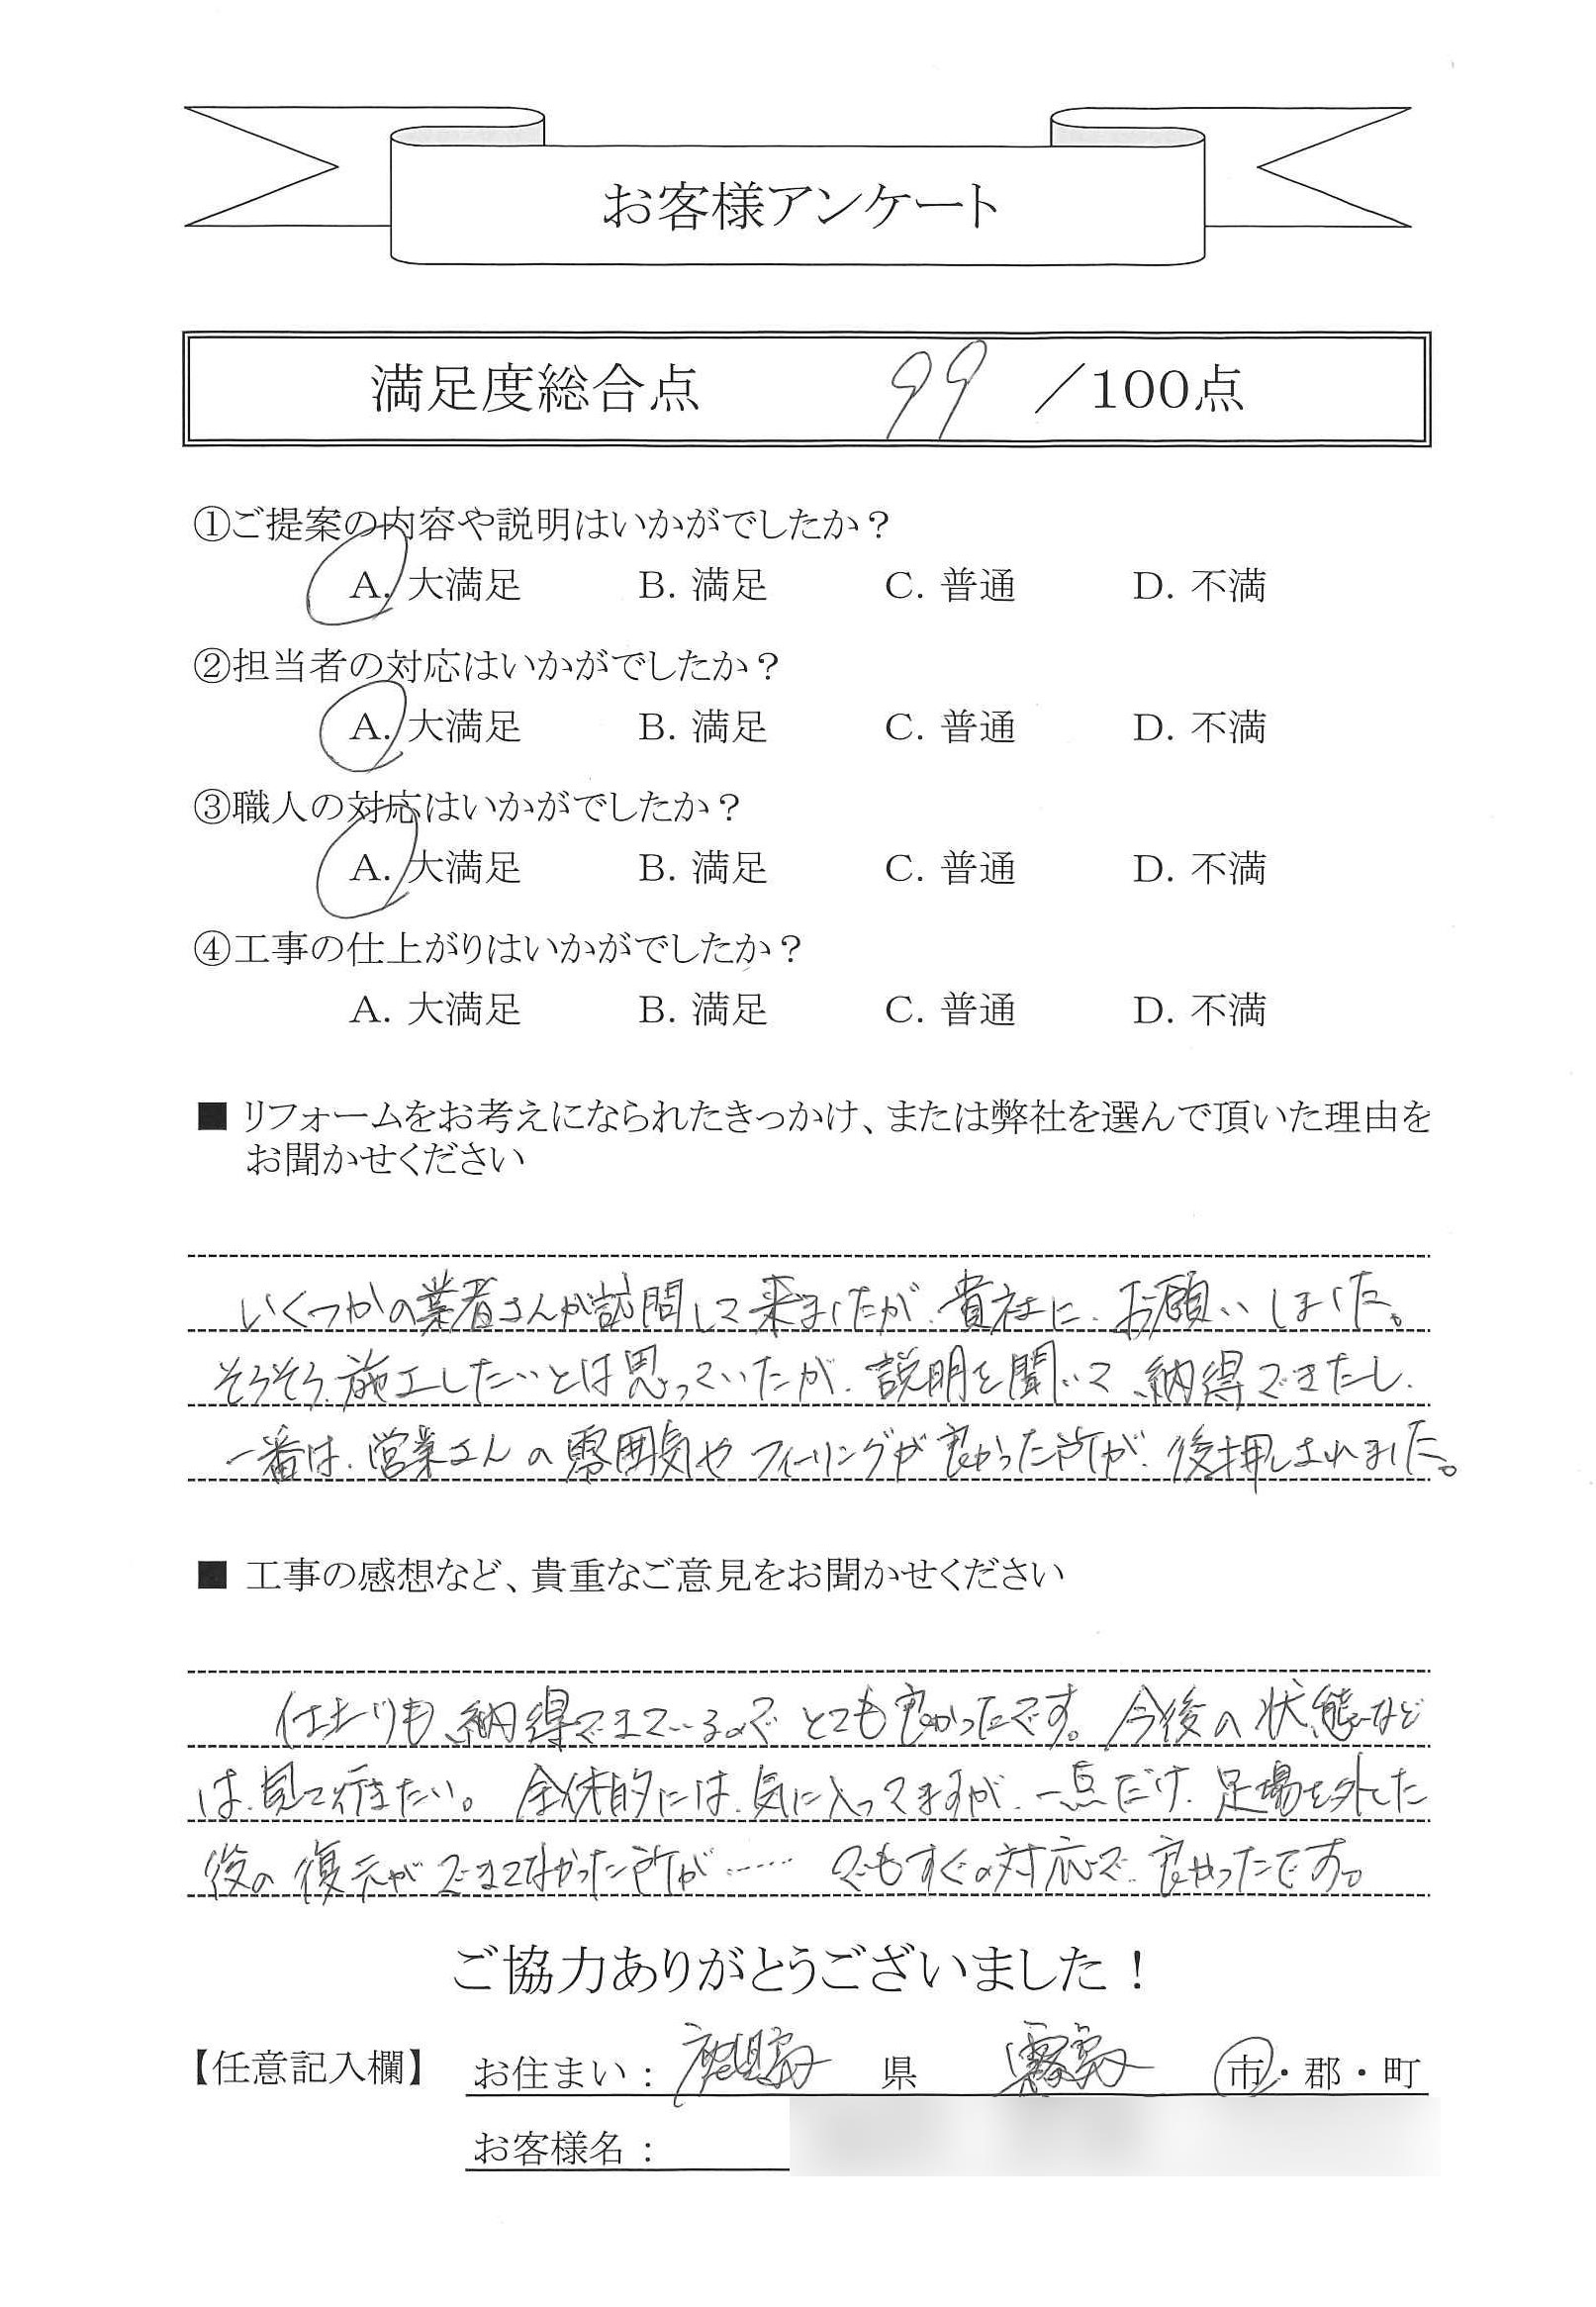 お客様アンケート
満足度総合点 99 ／100点
①ご提案の内容や説明はいかがでしたか？
A. 大満足 B. 満足 C. 普通 D. 不満
②担当者の対応はいかがでしたか？
A. 大満足 B. 満足 C. 普通 D. 不満
③職人の対応はいかがでしたか？
A. 大満足 B. 満足 C. 普通 D. 不満
④工事の仕上がりはいかがでしたか？
A. 大満足 B. 満足 C. 普通 D. 不満
■ リフォームをお考えになられたきっかけ、または弊社を選んで頂いた理由を
お聞かせください
いくつかの業者さんが訪問して来ましたが、貴社に、お願いしました。
そろそろ、施工したいとは思っていたが、説明を聞いて、納得できたし、
一番は、営業さんの雰囲気やフィーリングが良かった所が、後押しされました。
■ 工事の感想など、貴重なご意見をお聞かせください
仕上りも、納得できているのでとても良かったです。今後の状態など
は、見て行きたい。全体的には、気に入ってますが、一点だけ、足場を外した
後の復元ができてなかった所が…… でもすぐの対応で、良かったです。
ご協力ありがとうございました！
【任意記入欄】 お住まい： 鹿児島 県 霧島 市・郡・町
お客様名：